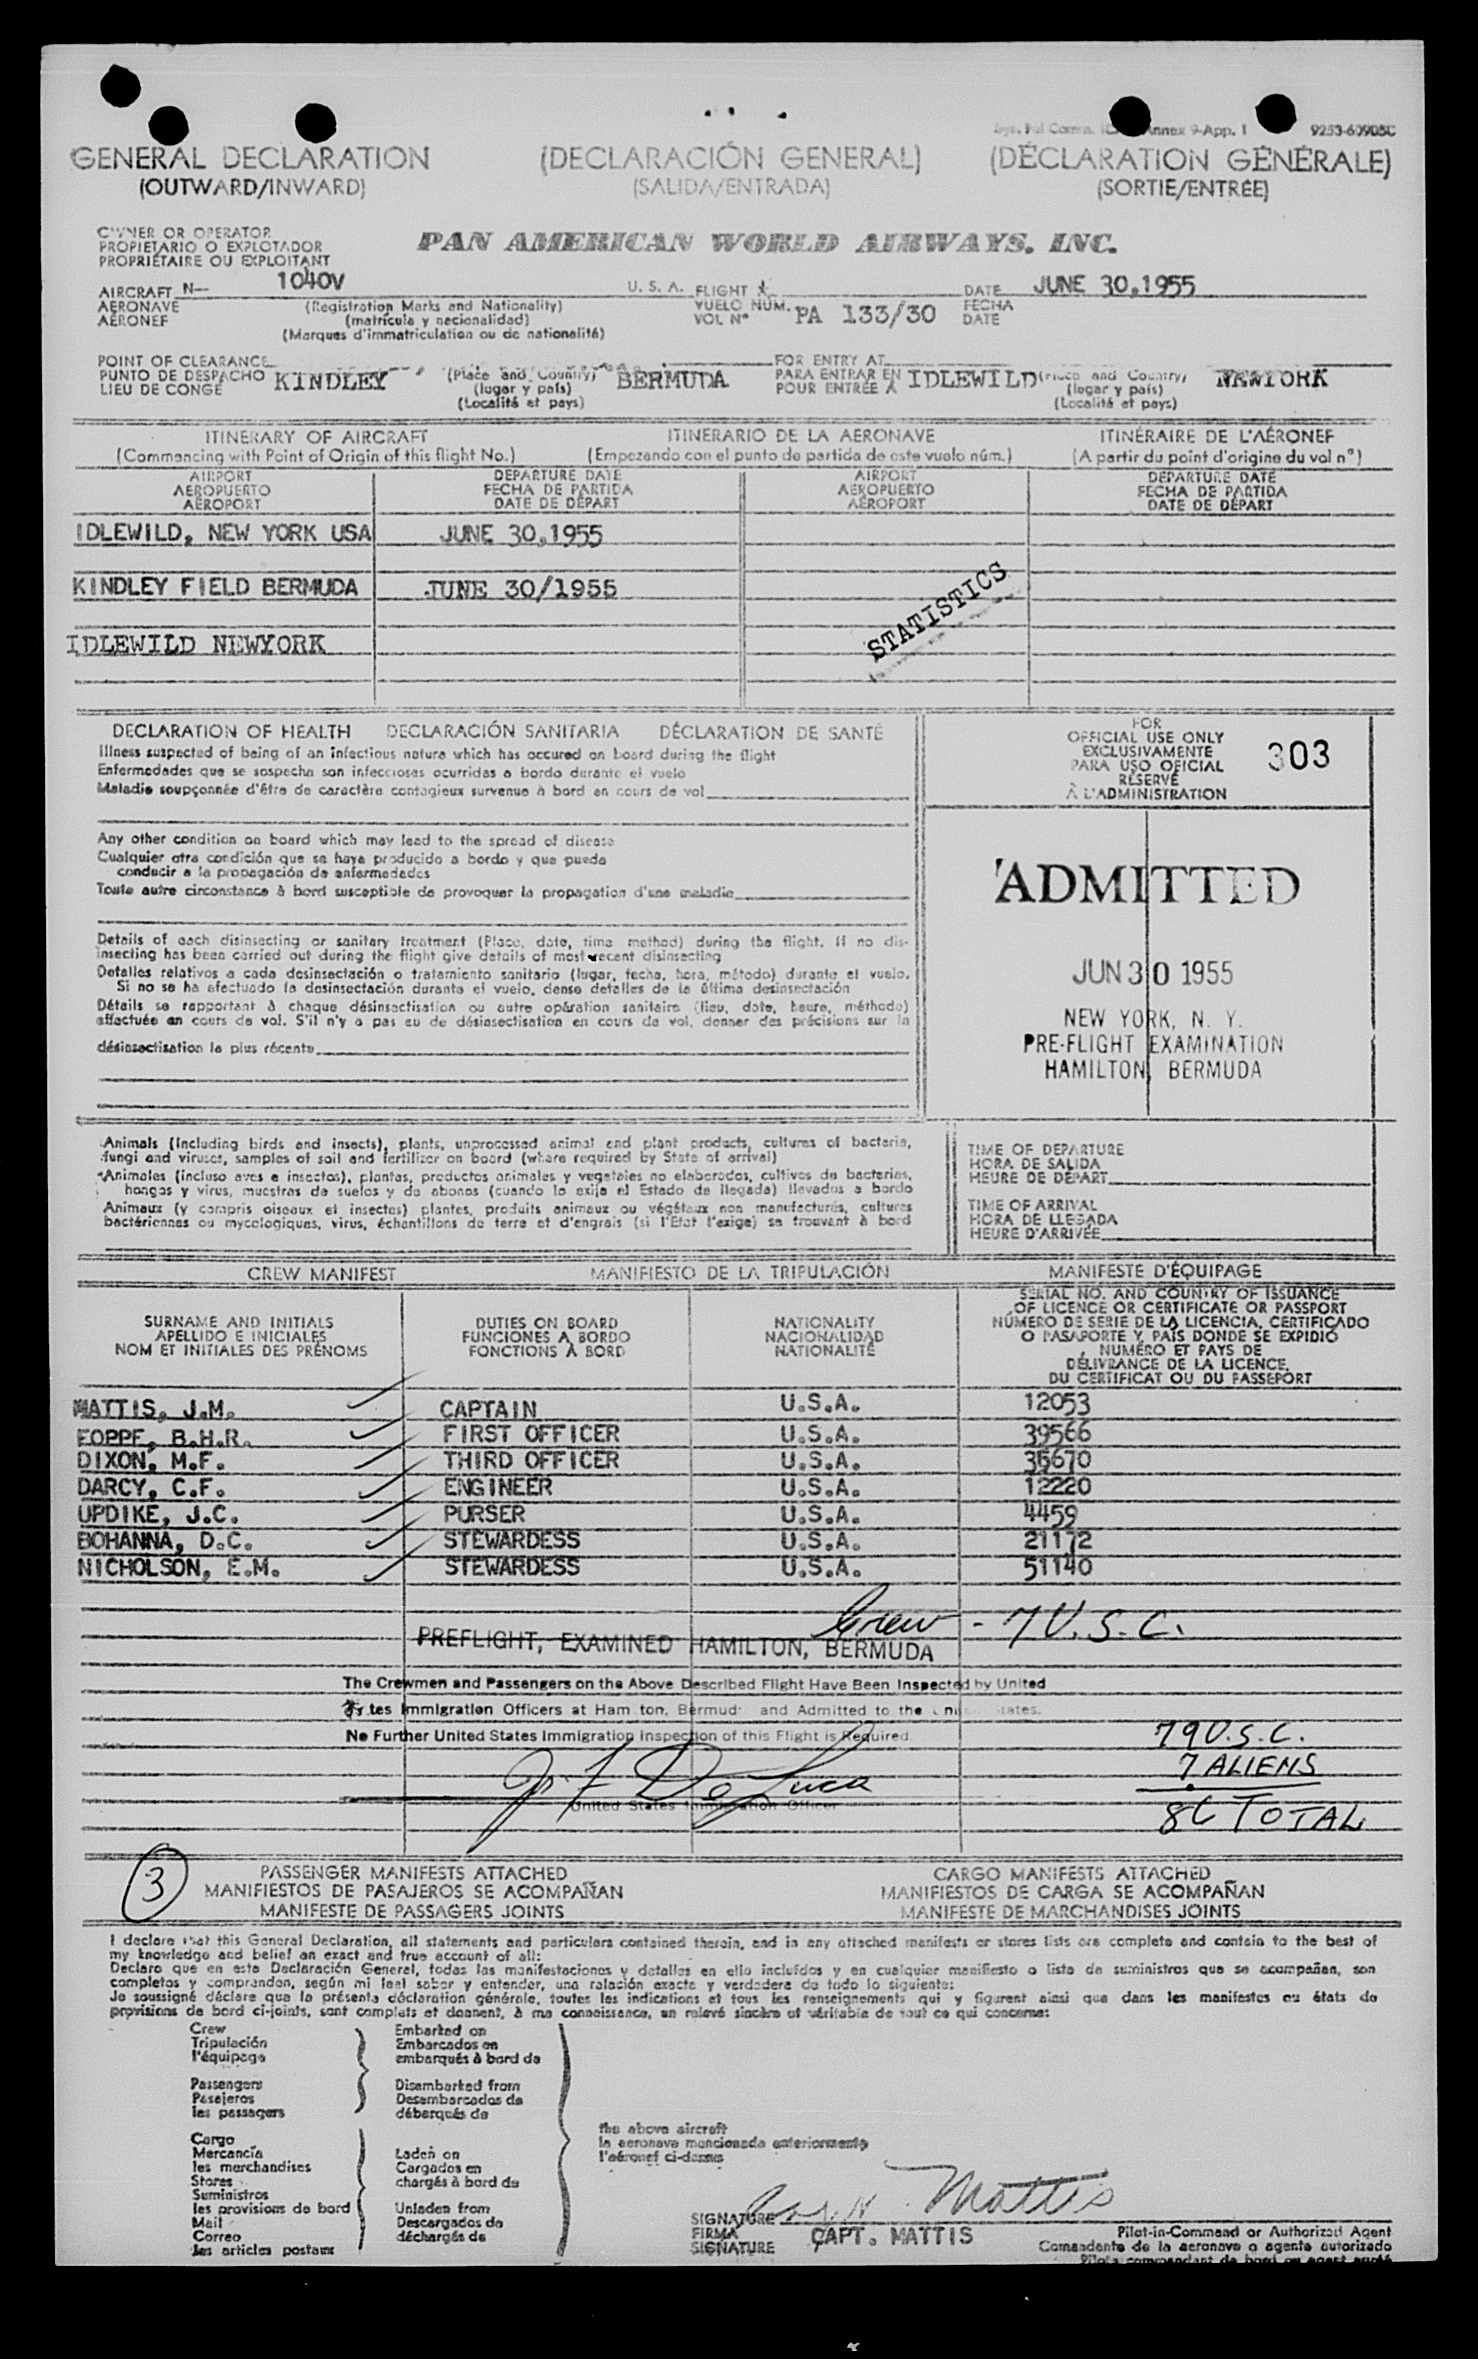 Annex 9-App. 1 9253-60905C
GENERAL DECLARATION (DECLARACIÓN GENERAL) (DÉCLARATION GÉNÉRALE)
(OUTWARD/INWARD) (SALIDA/ENTRADA) (SORTIE/ENTRÉE)
OWNER OR OPERATOR
PROPIETARIO O EXPLOTADOR
PROPRIÉTAIRE OU EXPLOITANT
PAN AMERICAN WORLD AIRWAYS, INC.
AIRCRAFT N- 1040V U. S. A. FLIGHT DATE JUNE 30,1955
AERONAVE (Registration Marks and Nationality) VUELO NÚM. PA 133/30 FECHA
AÉRONEF (matrícula y nacionalidad) VOL Nº DATE
(Marques d'immatriculation ou de nationalité)
POINT OF CLEARANCE FOR ENTRY AT
PUNTO DE DESPACHO KINDLEY (Place and Country) BERMUDA PARA ENTRAR EN IDLEWILD (Place and Country) NEWYORK
LIEU DE CONGÉ (lugar y país) POUR ENTRÉE À (lugar y país)
(Localité et pays) (Localité et pays)
ITINERARY OF AIRCRAFT ITINERARIO DE LA AERONAVE ITINÉRAIRE DE L'AÉRONEF
(Commencing with Point of Origin of this flight No.) (Empezando con el punto de partida de este vuelo núm.) (A partir du point d'origine du vol nº)
AIRPORT DEPARTURE DATE AIRPORT DEPARTURE DATE
AEROPUERTO FECHA DE PARTIDA AEROPUERTO FECHA DE PARTIDA
AÉROPORT DATE DE DÉPART AÉROPORT DATE DE DÉPART
IDLEWILD, NEW YORK USA JUNE 30,1955
KINDLEY FIELD BERMUDA JUNE 30/1955
STATISTICS
IDLEWILD NEWYORK
DECLARATION OF HEALTH DECLARACIÓN SANITARIA DÉCLARATION DE SANTÉ
Illness suspected of being of an infectious nature which has occured on board during the flight
Enfermedades que se sospecha son infecciosas ocurridas a bordo durante el vuelo
Maladie soupçonnée d'être de caractère contagieux survenue à bord en cours de vol
FOR
OFFICIAL USE ONLY
EXCLUSIVAMENTE
PARA USO OFICIAL
RÉSERVÉ
À L'ADMINISTRATION
303
Any other condition on board which may lead to the spread of disease
Cualquier otra condición que se haya producido a bordo y que pueda
conducir a la propagación de enfermedades
Toute autre circonstance à bord susceptible de provoquer la propagation d'une maladie
ADMITTED
JUN 30 1955
NEW YORK, N. Y.
PRE-FLIGHT EXAMINATION
HAMILTON, BERMUDA
Details of each disinsecting or sanitary treatment (Place, date, time method) during the flight. If no dis-
insecting has been carried out during the flight give details of most recent disinsecting
Detalles relativos a cada desinsectación o tratamiento sanitario (lugar, fecha, hora, método) durante el vuelo.
Si no se ha efectuado la desinsectación durante el vuelo, dense detalles de la última desinsectación
Détails se rapportant à chaque désinsectisation ou autre opération sanitaire (lieu, date, heure, méthode)
effectuée en cours de vol. S'il n'y a pas eu de désinsectisation en cours de vol, donner des précisions sur la
désinsectisation la plus récente
Animals (Including birds and insects), plants, unprocessed animal and plant products, cultures of bacteria,
fungi and viruses, samples of soil and fertilizer on board (where required by State of arrival)
Animales (incluso aves e insectos), plantas, productos animales y vegetales no elaborados, cultivos de bacterias,
hongos y virus, muestras de suelos y de abonos (cuando lo exija el Estado de llegada) llevados a bordo
Animaux (y compris oiseaux et insectes) plantes, produits animaux ou végétaux non manufacturés, cultures
bactériennes ou mycologiques, virus, échantillons de terre et d'engrais (si l'État l'exige) se trouvant à bord
TIME OF DEPARTURE
HORA DE SALIDA
HEURE DE DÉPART
TIME OF ARRIVAL
HORA DE LLEGADA
HEURE D'ARRIVÉE
CREW MANIFEST MANIFIESTO DE LA TRIPULACIÓN MANIFESTE D'ÉQUIPAGE
SURNAME AND INITIALS
APELLIDO E INICIALES
NOM ET INITIALES DES PRÉNOMS
DUTIES ON BOARD
FUNCIONES A BORDO
FONCTIONS À BORD
NATIONALITY
NACIONALIDAD
NATIONALITÉ
SERIAL NO. AND COUNTRY OF ISSUANCE
OF LICENCE OR CERTIFICATE OR PASSPORT
NÚMERO DE SERIE DE LA LICENCIA, CERTIFICADO
O PASAPORTE Y PAÍS DONDE SE EXPIDIÓ
NUMÉRO ET PAYS DE
DÉLIVRANCE DE LA LICENCE,
DU CERTIFICAT OU DU PASSEPORT
MATTIS, J.M. CAPTAIN U.S.A. 12053
FOPPE, B.H.R. FIRST OFFICER U.S.A. 39566
DIXON, M.F. THIRD OFFICER U.S.A. 36670
DARCY, C.F. ENGINEER U.S.A. 12220
UPDIKE, J.C. PURSER U.S.A. 4459
BOHANNA, D.C. STEWARDESS U.S.A. 21172
NICHOLSON, E.M. STEWARDESS U.S.A. 51140
Crew - 7 U.S.C.
PREFLIGHT, EXAMINED HAMILTON, BERMUDA
The Crewmen and Passengers on the Above Described Flight Have Been Inspected by United
States Immigration Officers at Hamilton, Bermuda and Admitted to the United States.
No Further United States Immigration Inspection of this Flight is Required.
79 U.S.C.
7 ALIENS
86 TOTAL
J. F. DeLuca
United States Immigration Officer
3
PASSENGER MANIFESTS ATTACHED CARGO MANIFESTS ATTACHED
MANIFIESTOS DE PASAJEROS SE ACOMPAÑAN MANIFIESTOS DE CARGA SE ACOMPAÑAN
MANIFESTE DE PASSAGERS JOINTS MANIFESTE DE MARCHANDISES JOINTS
I declare that this General Declaration, all statements and particulars contained therein, and in any attached manifests or stores lists are complete and contain to the best of
my knowledge and belief an exact and true account of all:
Declaro que en esta Declaración General, todas las manifestaciones y detalles en ella incluídos y en cualquier manifiesto o lista de suministros que se acompañan, son
completos y comprenden, según mi leal saber y entender, una relación exacta y verdadera de todo lo siguiente:
Je soussigné déclare que la présente déclaration générale, toutes les indications et tous les renseignements qui y figurent ainsi que dans les manifestes ou états de
provisions de bord ci-joints, sont complets et donnent, à ma connaissance, un relevé sincère et véritable de tout ce qui concerne:
Crew
Tripulación
l'équipage
Passengers
Pasajeros
les passagers
Cargo
Mercancía
les marchandises
Stores
Suministros
les provisions de bord
Mail
Correo
les articles postaux
Embarked on
Embarcados en
embarqués à bord de
Disembarked from
Desembarcados de
débarqués de
Laden on
Cargados en
chargés à bord de
Unladen from
Descargados de
déchargés de
the above aircraft
la aeronave mencionada anteriormente
l'aéronef ci-dessus
SIGNATURE Mattis
FIRMA CAPT. MATTIS
SIGNATURE
Pilot-in-Command or Authorized Agent
Comandante de la aeronave o agente autorizado
Pilote commandant de bord ou agent agréé